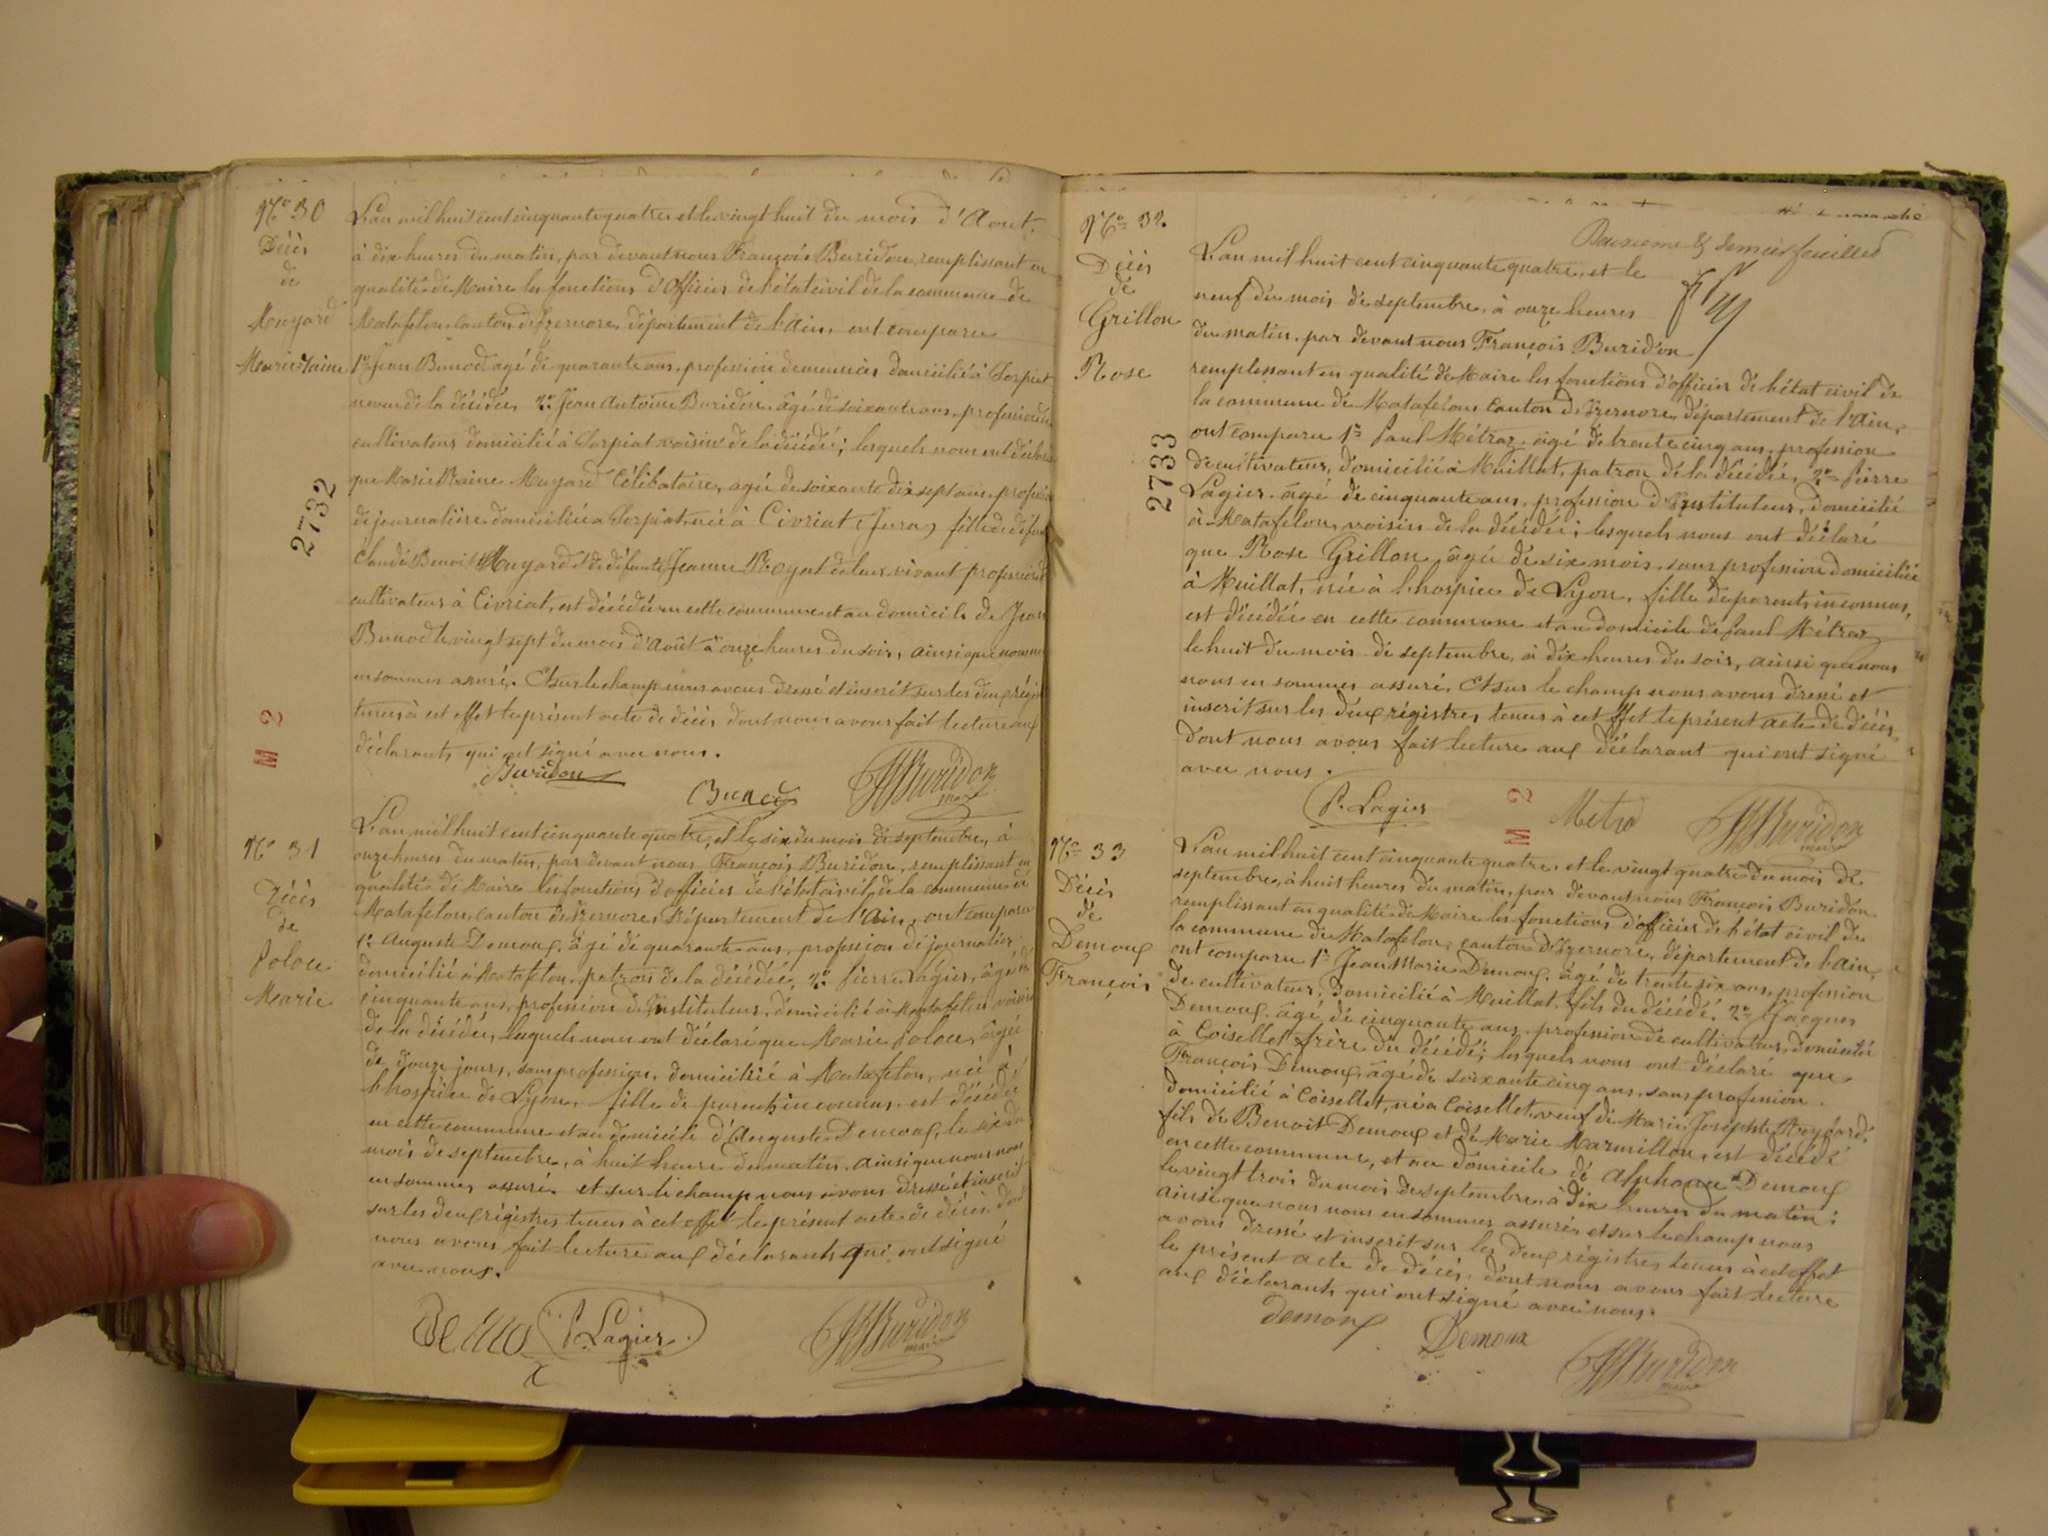 No 30
Décès
de
Muyard
Marie Reine
2732
M 2
L'an mil huit cent cinquante quatre et le vingt huit du mois d'Aout.
à dix heures du matin, par devant nous François Buridon, remplissant en
qualité de Maire les fonctions d'officier de l'état civil de la commune de
Matafelon, canton d'Izernore, département de l'Ain, ont comparu
1o Jean Bunod agé de quarante ans, profession de menuisier domicilié à Corpiat
neveu de la décédée, 2o Jean Antoine Buridon, âgé de soixante ans, profession de
cultivateur domicilié à Corpiat voisin de la décédé; lesquels nous ont déclaré
que Marie Reine Muyard Célibataire, agée de soixante dix sept ans, profession
de journalière domiciliée a Corpiat, née à Civriat (Jura) fille de défunt
Claude Benoit Muyard et de défunte Jeanne Royat de leur vivant profession de
cultivateur à Civriat, est décédée en cette commune et au domicile de Jean
Bunod le vingt sept du mois d'Août à onze heures du soir, ainsi que nous nous
en sommes assuré. Et sur le champ nous avons dressé et inscrit sur les deux régis
tres tenus à cet effet le présent acte de décès dont nous avons fait lecture aux
déclarants qui ont signé avec nous.
Buridon
Bunod
Buridon
maire
No 31
Décès
de
Marie
L'an mil huit cent cinquante quatre, et le six du mois de septembre, à
onze heures du matin, par devant nous François Buridon, remplissant en
qualité de Maire les fonctions d'officier de l'état civil de la commune de
Matafelon, canton d'Izernore, département de l'Ain, ont comparu
1o Auguste Demoux, âgé de quarante ans, profession de journalier
domicilié à Matafelon, patron de la décédée, 2o Pierre Lagier, âgé de
cinquante ans, profession d'Instituteur, domicilié à Matafelon, voisin
de la décédée, lesquels nous ont déclaré que Marie, âgée
de douze jours, sans profession, domiciliée à Matafelon, née à
l'hospice de Lyon, fille de parents inconnus, est décédée
en cette commune et au domicile d'Auguste Demoux, le six du
mois de septembre, à huit heure du matin, ainsi que nous nous
en sommes assuré. et sur le champ nous avons dressé et inscrit
sur les deux régistres tenus à cet effet le présent acte de décès dont
nous avons fait lecture aux déclarants qui ont signé
avec nous.
P. Lagier
Buridon
maire
No 32
Décès
de
Grillon
Rose
2733
Deuxième & dernier feuillet
L'an mil huit cent cinquante quatre, et le
neuf du mois de septembre, à onze heures
du matin, par devant nous François Buridon
remplissant en qualité de Maire les fonctions d'officier de l'état civil de
la commune de Matafelon, canton d'Izernore, département de l'Ain,
ont comparu 1o Paul Métraz, âgé de trente cinq ans, profession
de cultivateur, domicilié à Heillat, patron de la décédée, 2o Pierre
Lagier, âgé de cinquante ans, profession d'Instituteur, domicilié
à Matafelon, voisin de la décédée; lesquels nous ont déclaré
que Rose Grillon, âgée de six mois, sans profession domiciliée
à Heillat, née à l'hospice de Lyon, fille de parents inconnus,
est décédée en cette commune et au domicile de Paul Métraz
le huit du mois de septembre, à dix heures du soir, ainsi que nous
nous en sommes assuré. Et sur le champ nous avons dressé et
inscrit sur les deux régistres tenus à cet effet le présent acte de décès
dont nous avons fait lecture aux déclarant qui ont signé
avec nous.
P. Lagier
M 2
Metra
Buridon
maire
No 33
Décès
de
Demoux
François
L'an mil huit cent cinquante quatre, et le vingt quatre du mois de
septembre, à huit heures du matin, par devant nous François Buridon
remplissant en qualité de Maire les fonctions d'officier de l'état civil de
la commune de Matafelon, canton d'Izernore, département de l'Ain,
ont comparu 1o Jean Marie Demoux, âgé de trente six ans, profession
de cultivateur, domicilié à Heillat, fils du décédé, 2o Jacques
Demoux, âgé de cinquante ans, profession de cultivateur, domicilié
à Coisellet frère du décédé; lesquels nous ont déclaré que
François Demoux, âgé de soixante cinq ans, sans profession
domicilié à Coisellet, né à Coisellet, veuf de Marie Josephte
fils de Benoit Demoux et de Marie Marmillon, est décédé
en cette commune, et au domicile de Alphonse Demoux
le vingt trois du mois de septembre à dix heures du matin;
ainsi que nous nous en sommes assuré, et sur le champ nous
avons dressé et inscrit sur les deux régistres tenus à cet effet
le présent acte de décès, dont nous avons fait lecture
aux déclarants qui ont signé avec nous.
demoux
Demoux
Buridon
maire